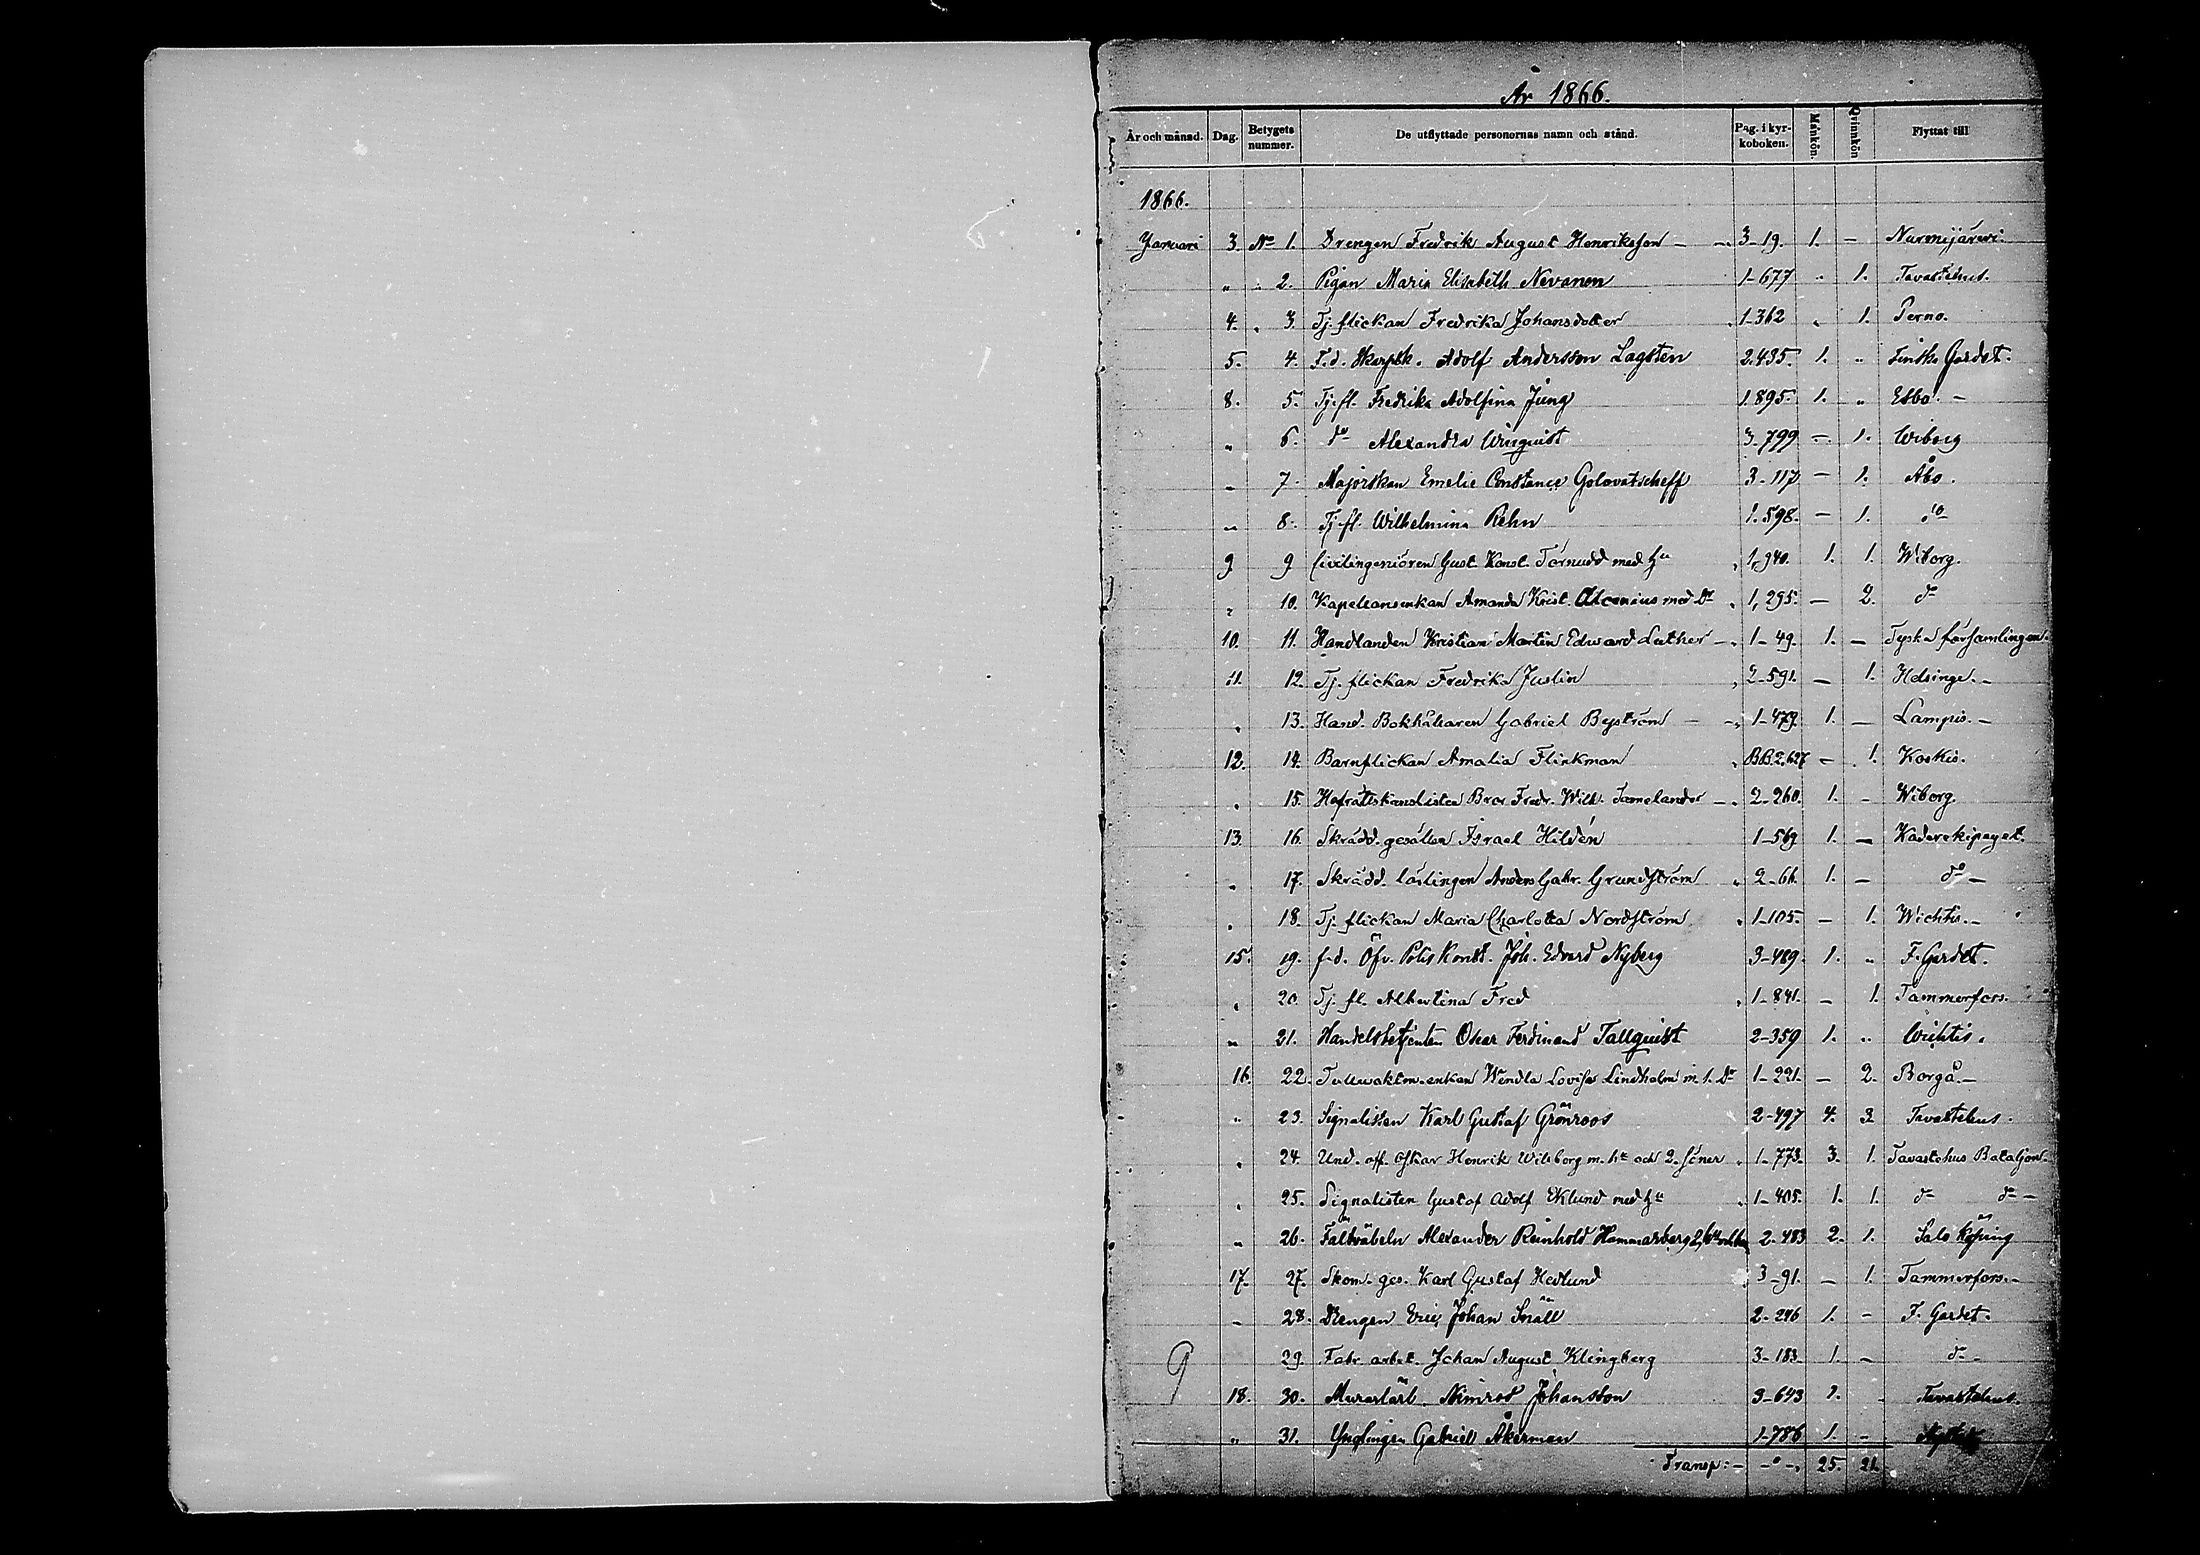 År 1866.
År och månad. Dag. Betygets nummer. De utflyttade personernas namn och stånd. Pag. i kyrkoboken. Mankön. Qvinnkön Flyttat till
1866.
Januari 3. No 1. Drengen Fredrik August Henriksson - 3-19. 1. - Nurmijärvi.
" 2. Pigan Maria Elisabeth Nevanen 1-677 " 1. Tavastehus.
4. " 3. Tj. flickan Fredrika Johansdotter 1-362 " 1. Perno.
5. 4. F.d. Skarpsk. Adolf Andersson Lagsten 2.435. 1. " Finska Gardet.
8. 5. Tj. fl. Fredrika Adolfina Jung 1.895. 1. " Esbo. -
" 6. do Alexandra Winquist 3-799 - 1. Wiborg
" 7. Majorskan Emelie Constance Golovatscheff 3-117 - 1. Åbo.
" 8. Tj. fl. Wilhelmina Rehn 1.598. - 1. do
9 9 Civilingeniören Gust. Konst. Törnudd med hu 1,940. 1. 1. Wiborg.
" 10. Kapellansenkan Amanda Krist. Alcenius med Dr 1,295. - 2. do
10. 11. Handlanden Kristian Martin Edward Luther - 1-49. 1. - Tyska församlingen.
11. 12. Tj. flickan Fredrika Juslin 2-591. - 1. Helsinge. -
" 13. Hand. Bokhållaren Gabriel Byström - 1-479. 1. - Lampis. -
12. 14. Barnflickan Amalia Flinkman BB.2.627 - 1. Koskis.
" 15. Hofrättskanslisten Bror Fredr. Wilh. Tamelander - 2-260. 1. - Wiborg.
13. 16. Skrädd. gesällen Israel Hildén 1-569 1. - Kaderekipaget.
" 17. Skrädd. lärlingen Anders Gabr. Grundström 2-66. 1. - do -
" 18. Tj. flickan Maria Charlotta Nordström 1-105 - 1. Wichtis. -
15. 19. f.d. Öfv. Polis Konst. Joh. Edvard Nyberg 3-489. 1. " F. Gardet.
" 20. Tj. fl. Albertina Fred 1-841. - 1. Tammerfors.
" 21. Handelsbetjenten Oskar Ferdinand Tallquist 2-359 1. " Wichtis.
16. 22. Tullvaktm. enkan Wendla Lovisa Lindholm m. 1. Dr 1-221. - 2. Borgå. -
" 23. Signalisten Karl Gustaf Grönroos 2-497 4. 3 Tavastehus.
" 24. Und. off. Oskar Henrik Wileborg m. hu och 2. söner 1-773. 3. 1. Tavastehus Bataljon.
" 25. Signalisten Gustaf Adolf Eklund med hu 1-405. 1. 1. do do -
" 26. Fältväbeln Alexander Reinhold Hammarberg 2-483 2. 1. Salo Köping
17. 27. Skom. ges. Karl Gustaf Hedlund 3-91. - 1. Tammerfors. -
" 28. Drengen Eric Johan Snäll 2-246 1. - F. Gardet.
29. Fabr. arbet. Johan August Klingberg 3-183. 1. - do -
18. 30. Murarlärl. Nimrod Johansson 3-643 1. Tavastehus.
" 31. Ynglingen Gabriel Åkerman 1-786 1. -
Transp: - -"- 25. 21.
9